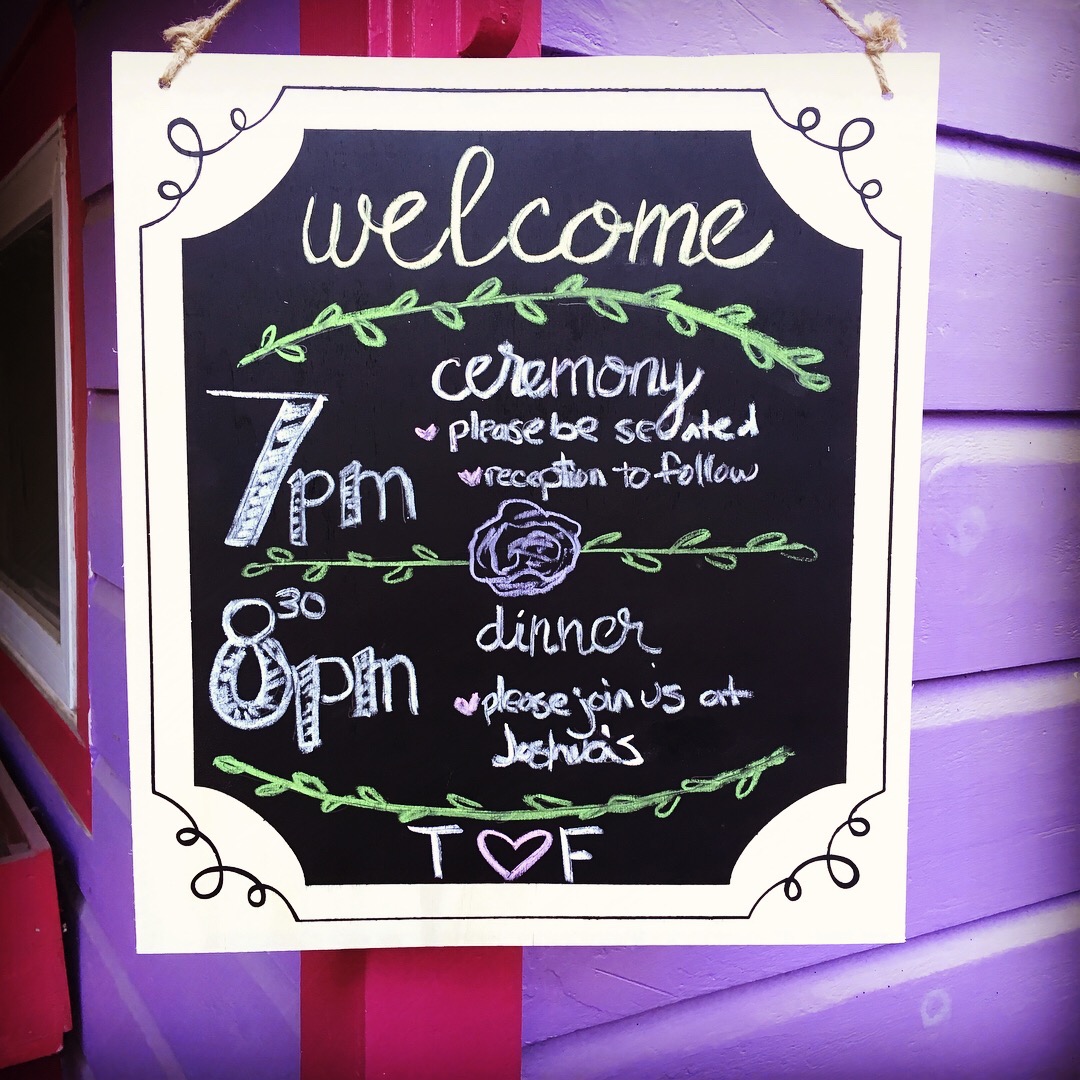 welcome
ceremony
7pm
please be seated
reception to follow
8 30 pm
dinner
please join us at
Joshua's
T F